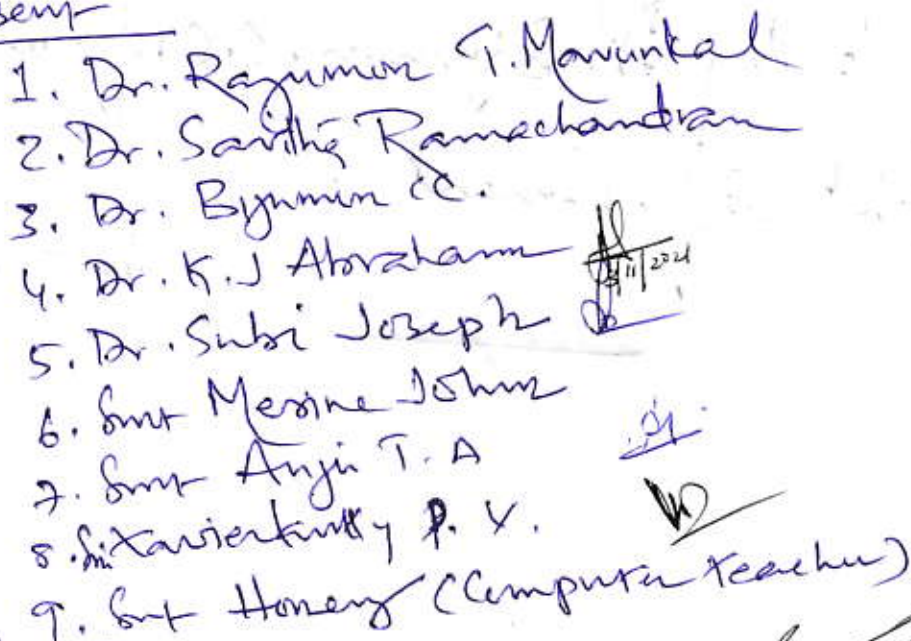 1. Dr. Rajumon T. Mavunkal
2. Dr. Savitha Ramachandran
3. Dr. Byjumon C.C.
4. Dr. K.J Abraham
11/2021
5. Dr. Subi Joseph
6. Smt Merine John
7. Smt Anju T. A
8. Sri Xavierkutty P. X.
9. Smt Honey (Computer teacher)